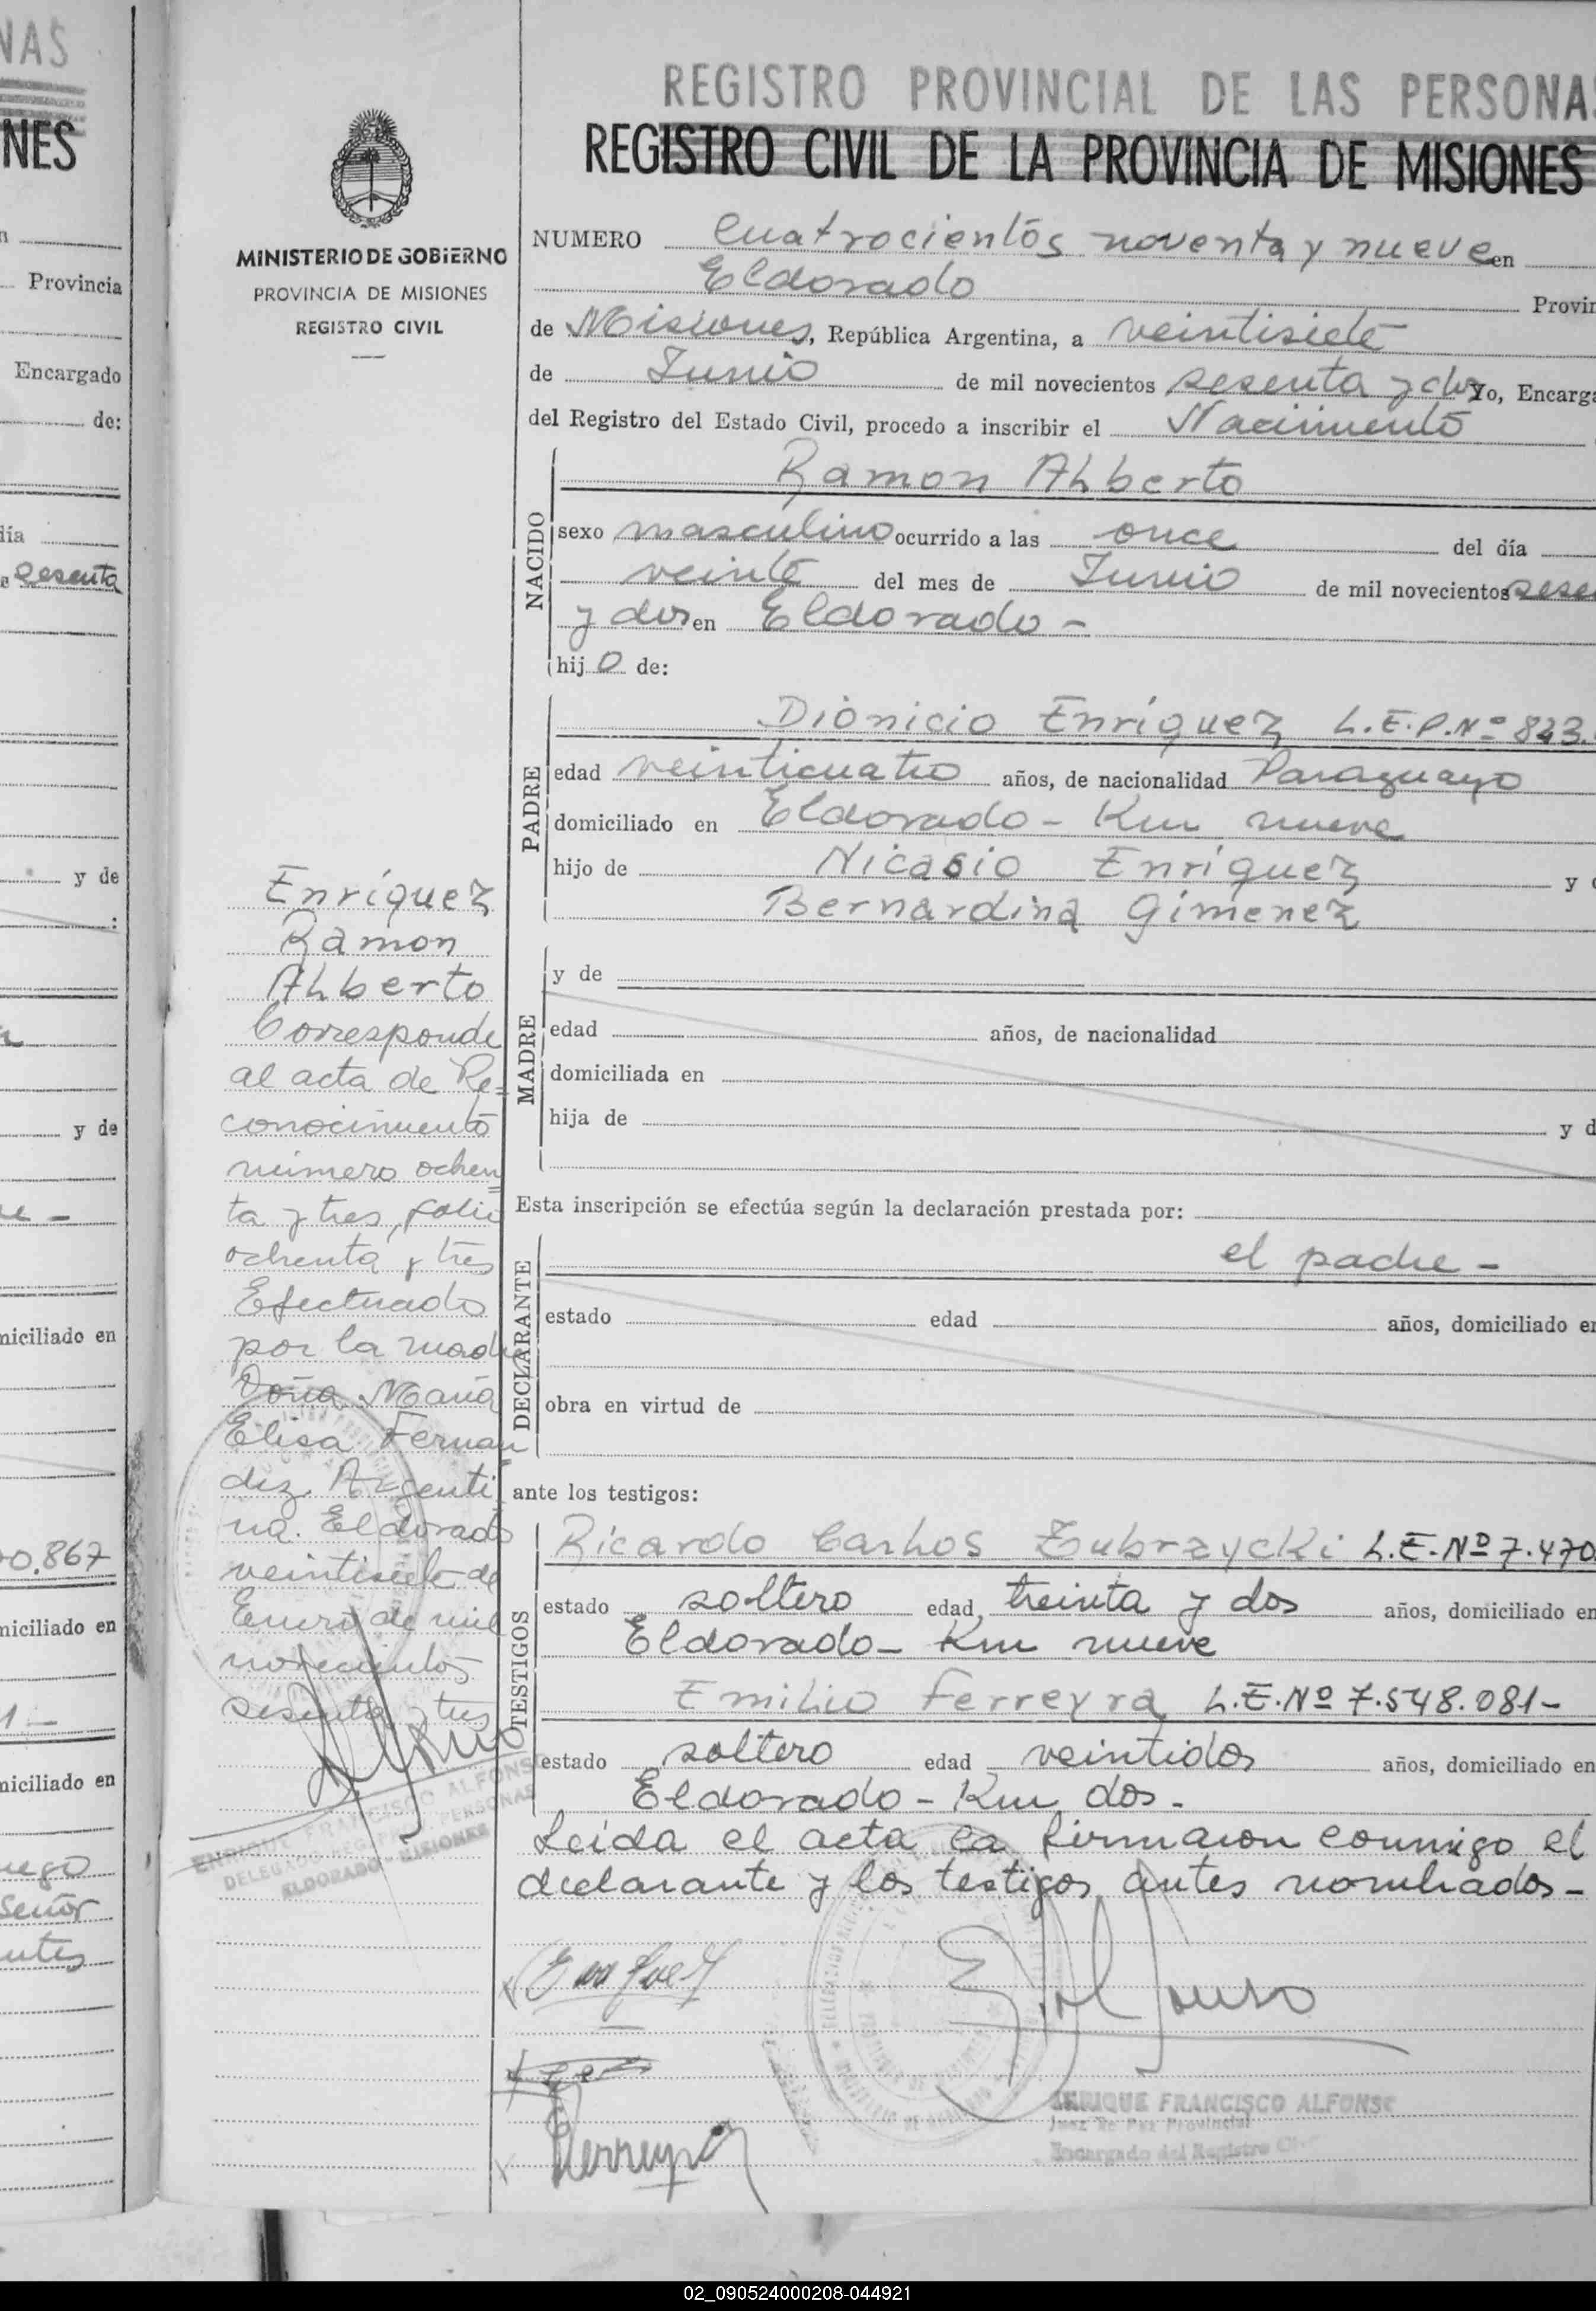 NAS
NES
Provincia
Encargado
de:
día
sesenta
y de
y de
niciliado en
0.867
niciliado en
1.-
niciliado en
Señor
MINISTERIO DE GOBIERNO
PROVINCIA DE MISIONES
REGISTRO CIVIL
Enríquez
Ramon
Alberto
Corresponde
al acta de Re=
conocimiento
número ochen=
ta y tres, folio
ochenta y tres
Efectuado
por la madre
Doña Maria
Elisa Fernan
dez. Argenti
na. Eldorado
veintisiete de
Enero de mil
novecientos
sesenta y tres
ENRIQUE FRANCISCO ALFONS
DELEGADO REG. PROV. PERSONAS
ELDORADO - MISIONES
REGISTRO PROVINCIAL DE LAS PERSONAS
REGISTRO CIVIL DE LA PROVINCIA DE MISIONES
NUMERO Cuatrocientos noventa y nueve en
Eldorado Provin
de Misiones, República Argentina, a veintisiete
de Junio de mil novecientos sesenta y dos Yo, Encarga
del Registro del Estado Civil, procedo a inscribir el Nacimiento
NACIDO
Ramon Alberto
sexo masculino ocurrido a las once del día
veinte del mes de Junio de mil novecientos sese
y dos en Eldorado -
hij o de:
PADRE
Dionicio Enríquez L.E.P.Nº 823.
edad veinticuatro años, de nacionalidad Paraguayo
domiciliado en Eldorado - Km nueve
hijo de Nicasio Enríquez y
Bernardina Gimenez
MADRE
y de
edad años, de nacionalidad
domiciliada en
hija de y d
Esta inscripción se efectúa según la declaración prestada por:
DECLARANTE
el padre -
estado edad años, domiciliado en
obra en virtud de
ante los testigos:
TESTIGOS
Ricardo Carlos Zubrzycki L.E.Nº 7.470
estado soltero edad treinta y dos años, domiciliado en
Eldorado - Km nueve
Emilio Ferreyra L.E.Nº 7.548.081-
estado soltero edad veintidos años, domiciliado en
Eldorado - Km dos -
Leida el acta la firmaron conmigo el
declarante y los testigos antes nombrados -
Ferreyra
ENRIQUE FRANCISCO ALFONSO
Juez de Paz Provincial
Encargado del Registro Ci
02_090524000208-044921